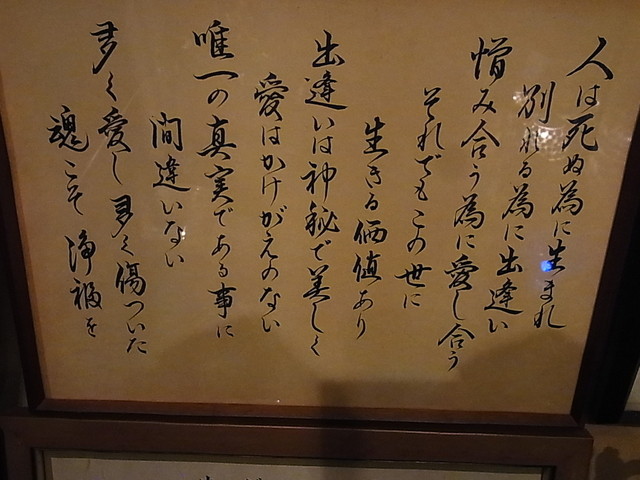 人は死ぬ為に生まれ
別れる為に出逢い
憎み合う為に愛し合う
それでもこの世に
生きる価値あり
出逢いは神秘で美しく
愛はかけがえのない
唯一の真実である事に
間違いない
多く愛し多く傷ついた
魂こそ浄福を